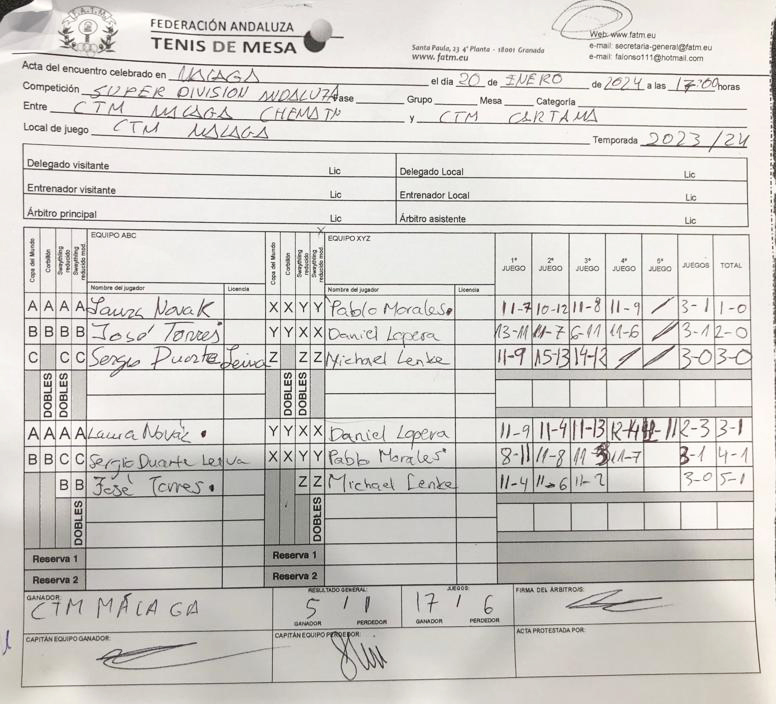 FEDERACIÓN ANDALUZA
TENIS DE MESA
Santa Paula, 23 4ª Planta - 18001 Granada
www.fatm.eu
Web: www.fatm.eu
e-mail: secretaria-general@fatm.eu
e-mail: falonso111@hotmail.com
Acta del encuentro celebrado en MALAGA el día 20 de ENERO de 2024 a las 17:00 horas
Competición SUPER DIVISION ANDALUZA Fase Grupo Mesa Categoría
Entre CTM MALAGA y CTM CARTAMA
Local de juego CTM MALAGA Temporada 2023/24
Delegado visitante Lic Delegado Local Lic
Entrenador visitante Lic Entrenador Local Lic
Árbitro principal Lic Árbitro asistente Lic
Copa del Mundo Corbillón Swaythling reducido Swaythling reducido mod. EQUIPO ABC Copa del Mundo Corbillón Swaythling reducido Swaythling reducido mod. EQUIPO XYZ 1º JUEGO 2º JUEGO 3º JUEGO 4º JUEGO 5º JUEGO JUEGOS TOTAL
Nombre del jugador Licencia Nombre del jugador Licencia
A A A A Laura Novak X X Y Y Pablo Morales. 11-7 10-12 11-8 11-9 / 3-1 1-0
B B B B José Torres Y Y X X Daniel Lopera 13-11 11-7 6-11 11-6 / 3-1 2-0
C C C Sergio Duarte Leiva Z Z Z Michael Lenke 11-9 15-13 14-12 / / 3-0 3-0
DOBLES DOBLES DOBLES DOBLES
A A A A Laura Novak. Y Y X X Daniel Lopera 11-9 11-4 11-13 12-14 2-3 3-1
B B C C Sergio Duarte Leiva X X Y Y Pablo Morales 8-11 11-8 11-3 11-7 3-1 4-1
B B José Torres. Z Z Michael Lenke 11-4 11-6 11-2 3-0 5-1
DOBLES DOBLES
Reserva 1 Reserva 1
Reserva 2 Reserva 2
GANADOR: RESULTADO GENERAL: JUEGOS: FIRMA DEL ÁRBITRO/S:
CTM MÁLAGA 5 / 1 17 / 6
GANADOR PERDEDOR GANADOR PERDEDOR
CAPITÁN EQUIPO GANADOR: CAPITÁN EQUIPO PERDEDOR: ACTA PROTESTADA POR: